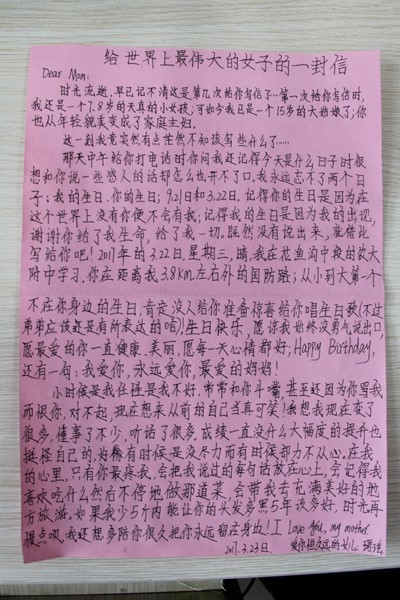 给世界上最伟大的女子的一封信
Dear Mom:
时光流逝,早已记不清这是第几次给你写信了…第一次给你写信时,
我还是一个7.8岁的天真的小女孩;可如今我已是一个15岁的大姑娘了;你
也从年轻貌美变成了家庭主妇。
这一刻我竟突然有点茫然不知该写些什么了……
那天中午给你打电话时你问我还记得今天是什么日子时很
想和你说一些感人的话却怎么也开不了口,我永远忘不了两个日
子;我的生日、你的生日;9.21日和3.22日,记得你的生日是因为在
这个世界上没有你便不会有我;记得我的生日是因为我的出现,
谢谢你给了我生命,给了我一切,既然没有说出来,就借此
写给你吧!2017年的3.22日,星期三,晴,我在花鱼沟中校的农大
附中学习。你在距离我3.8KM左右外的国防路;从小到大第一个
不在你身边的生日,肯定没人给你准备惊喜给你唱生日歌(不过
弟弟应该还是有所表达的哈)生日快乐,愿你我始终没勇气说出口,
愿最爱的你一直健康、美丽,愿每一天心情都好;Happy Birthday,
还有一句:我爱你,永远爱你,最爱的妈妈!
小时候是我任性是我不好,常常和你斗嘴,甚至还因为你骂我
而恨你,对不起,现在想来从前的自己当真可笑!我想我现在变了
很多,懂事了不少,听话了很多,成绩一直没什么大幅度的提升也
挺怪自己的,好像有时候是没尽力而有时候却力不从心。在我
的心里,只有你最疼我,会把我说过的每句话放在心上,会记得我
喜欢吃什么然后不停地做那道菜,会带我去充满美好的地
方旅游。如果我少5斤肉能让你的头发多黑5年该多好,时光再
慢点呗,我还想多陪你很久把你永远留在身边!I Love you, my mother.
2017.3.23日. 爱你恒久远的女儿